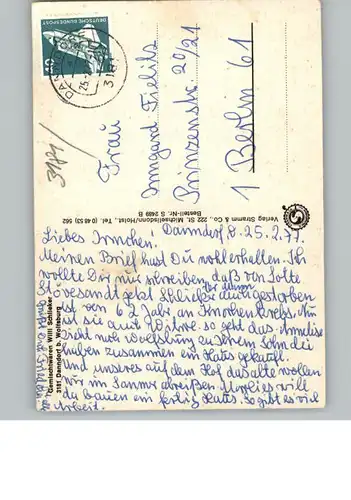 DEUTSCHE BUNDESPOST
40
3181
Frau
Irmgard Fielitz
Prinzenstr. 20/21
1 Berlin 61
3181/
Verlag Stramm & Co., 222 St. Michaelisdonn/Holst., Tel. (0 48 53) 562
Bestell-Nr. S 2489 B
Gemischtwaren Willi Schlieker
3181 Danndorf b. Wolfsburg
Danndorf d. 25.2.77.
Liebes Irmchen.
Meinen Brief hast Du wohl erhalten. Ich
wollte Dir nur schreiben, daß von Lotte
Stovesandt (jetzt Schlieker) der Mann gestorben
ist von 62 Jahr an Knochenkrebs. Nun
ist sie auch Witwe. So geht das. Anneliese
zieht nach Wolfsburg zu ihrem Sohn, die
haben zusammen ein Haus gekauft.
Und unseres auf dem Hof das alte wollen
wir im Sommer abreißen
da bauen ein fertig Haus. So gibt es viel
Arbeit.